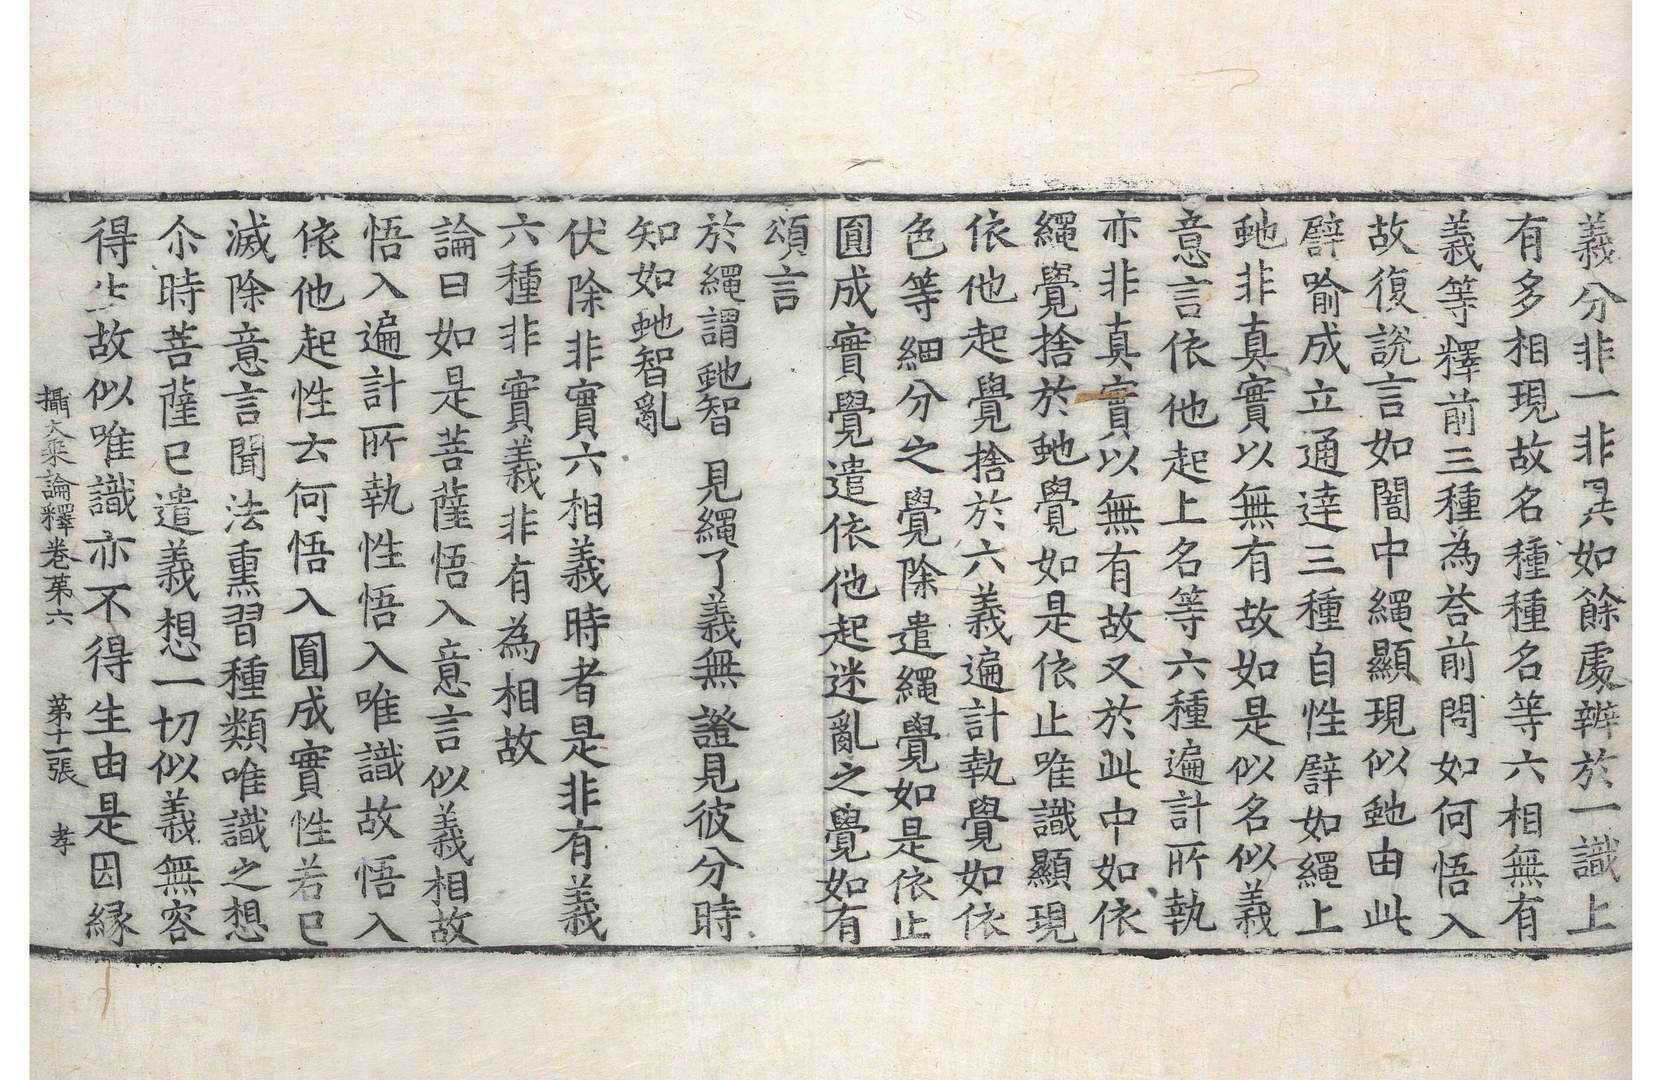 義分非一非異如餘處辯於一識上
有多相現故名種種名等六相無有
義等釋前三種為荅前問如何悟入
故復說言如闇中繩顯現似虵由此
譬喻成立通達三種自性譬如繩上
虵非真實以無有故如是似名似義
意言依他起上名等六種遍計所執
亦非真實以無有故又於此中如依
繩覺捨於虵覺如是依止唯識顯現
依他起覺捨於六義遍計執覺如依
色等細分之覺除遣繩覺如是依止
圓成實覺遣依他起迷亂之覺如有
頌言
於繩謂虵智 見繩了義無 證見彼分時
知如虵智亂
伏除非實六相義時者是非有義
六種非實義非有為相故
論曰如是菩薩悟入意言似義相故
悟入遍計所執性悟入唯識故悟入
依他起性云何悟入圓成實性若已
滅除意言聞法熏習種類唯識之想
尒時菩薩已遣義想一切似義無容
得生故似唯識亦不得生由是因縁
攝大乘論釋卷第六 第十一張 孝